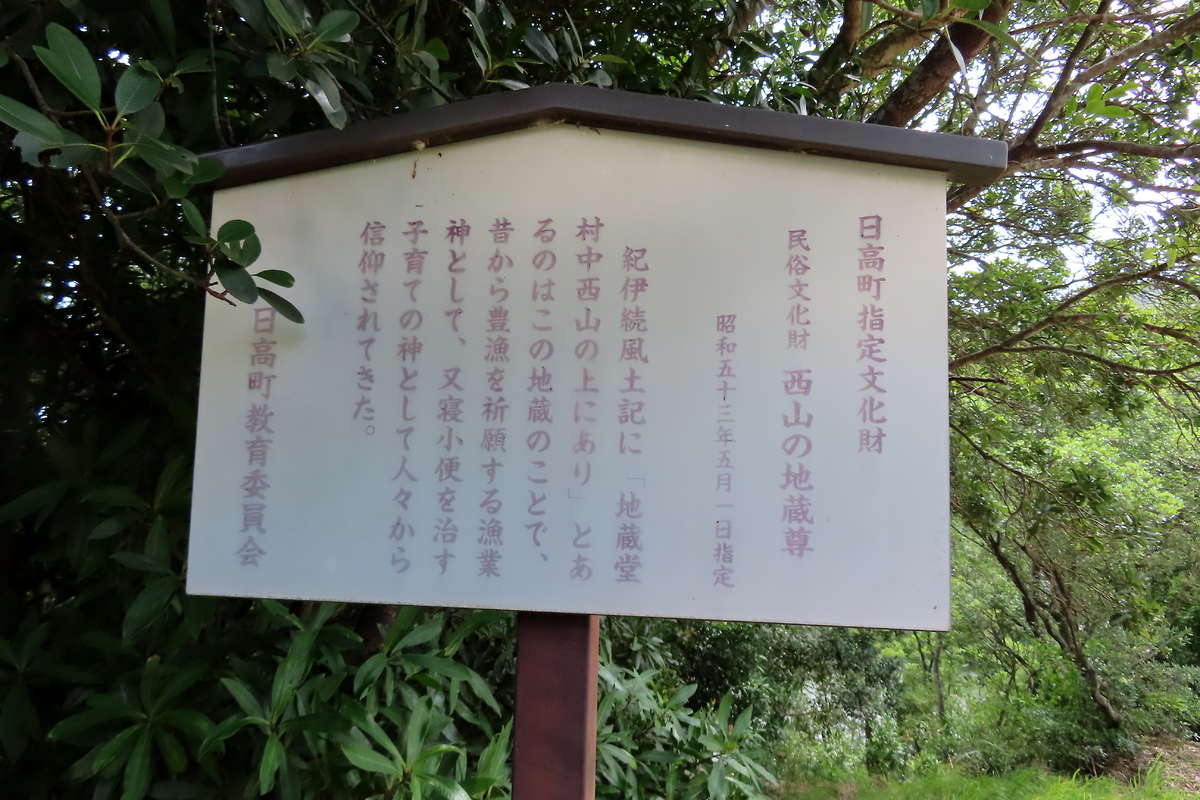 日高町指定文化財
民俗文化財 西山の地蔵尊
昭和五十三年五月一日指定
紀伊続風土記に「地蔵堂
村中西山の上にあり」とあ
るのはこの地蔵のことで、
昔から豊漁を祈願する漁業
神として、又寝小便を治す
子育ての神として人々から
信仰されてきた。
日高町教育委員会